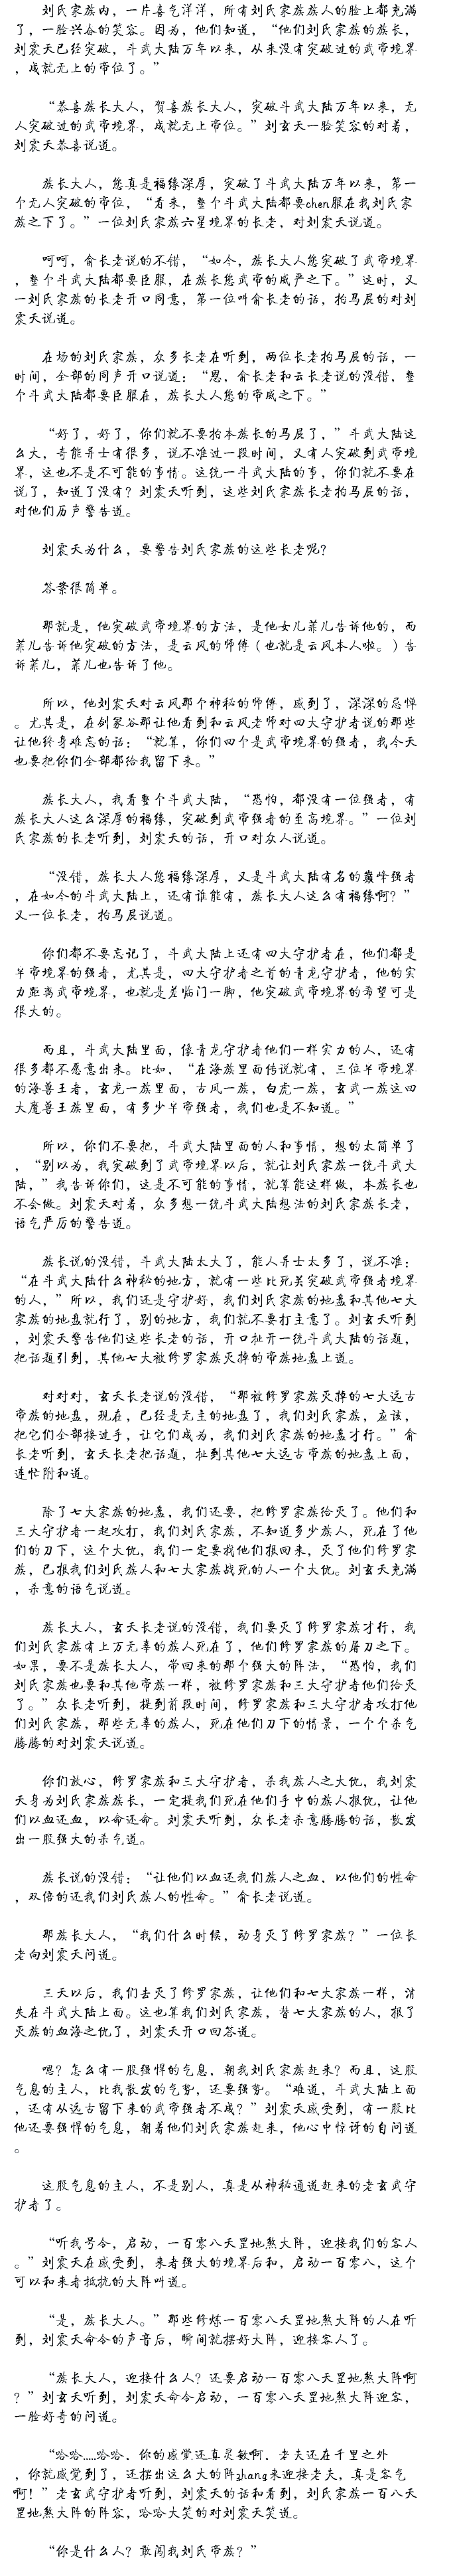 刘氏家族内，一片喜气洋洋，所有刘氏家族族人的脸上都充满
了，一脸兴奋的笑容。因为，他们知道，“他们刘氏家族的族长，
刘震天已经突破，斗武大陆万年以来，从来没有突破过的武帝境界
，成就无上的帝位了。”
“恭喜族长大人，贺喜族长大人，突破斗武大陆万年以来，无
人突破过的武帝境界，成就无上帝位。”刘玄天一脸笑容的对着，
刘震天恭喜说道。
族长大人，您真是福缘深厚，突破了斗武大陆万年以来，第一
个无人突破的帝位，“看来，整个斗武大陆都要chen服在我刘氏家
族之下了。”一位刘氏家族六星境界的长老，对刘震天说道。
呵呵，俞长老说的不错，“如今，族长大人您突破了武帝境界
，整个斗武大陆都要臣服，在族长您武帝的威严之下。”这时，又
一刘氏家族的长老开口同意，第一位叫俞长老的话，拍马屁的对刘
震天说道。
在场的刘氏家族，众多长老在听到，两位长老拍马屁的话，一
时间，全部的同声开口说道：“恩，俞长老和云长老说的没错，整
个斗武大陆都要臣服在，族长大人您的帝威之下。”
“好了，好了，你们就不要拍本族长的马屁了，”斗武大陆这
么大，奇能异士有很多，说不准过一段时间，又有人突破到武帝境
界，这也不是不可能的事情。这统一斗武大陆的事，你们就不要在
说了，知道了没有？刘震天听到，这些刘氏家族长老拍马屁的话，
对他们历声警告道。
刘震天为什么，要警告刘氏家族的这些长老呢？
答案很简单。
那就是，他突破武帝境界的方法，是他女儿菲儿告诉他的，而
菲儿告诉他突破的方法，是云风的师傅（也就是云风本人啦。）告
诉菲儿，菲儿也告诉了他。
所以，他刘震天对云风那个神秘的师傅，感到了，深深的忌惮
。尤其是，在剑冢谷那让他看到和云风老师对四大守护者说的那些
让他终身难忘的话：“就算，你们四个是武帝境界的强者，我今天
也要把你们全部都给我留下来。”
族长大人，我看整个斗武大陆，“恐怕，都没有一位强者，有
族长大人这么深厚的福缘，突破到武帝强者的至高境界。”一位刘
氏家族的长老听到，刘震天的话，开口对众人说道。
“没错，族长大人您福缘深厚，又是斗武大陆有名的巅峰强者
，在如今的斗武大陆上，还有谁能有，族长大人这么有福缘啊？”
又一位长老，拍马屁说道。
你们都不要忘记了，斗武大陆上还有四大守护者在，他们都是
半帝境界的强者，尤其是，四大守护者之首的青龙守护者，他的实
力距离武帝境界，也就是差临门一脚，他突破武帝境界的希望可是
很大的。
而且，斗武大陆里面，像青龙守护者他们一样实力的人，还有
很多都不愿意出来。比如，“在海族里面传说就有，三位半帝境界
的海兽王者，玄龙一族里面，古凤一族，白虎一族，玄武一族这四
大魔兽王族里面，有多少半帝强者，我们也是不知道。”
所以，你们不要把，斗武大陆里面的人和事情，想的太简单了
，“别以为，我突破到了武帝境界以后，就让刘氏家族一统斗武大
陆，”我告诉你们，这是不可能的事情，就算能这样做，本族长也
不会做。刘震天对着，众多想一统斗武大陆想法的刘氏家族长老，
语气严厉的警告道。
族长说的没错，斗武大陆太大了，能人异士太多了，说不准：
“在斗武大陆什么神秘的地方，就有一些比死关突破武帝强者境界
的人，”所以，我们还是守护好，我们刘氏家族的地盘和其他七大
家族的地盘就行了，别的地方，我们就不要打主意了。刘玄天听到
，刘震天警告他们这些长老的话，开口扯开一统斗武大陆的话题，
把话题引到，其他七大被修罗家族灭掉的帝族地盘上道。
对对对，玄天长老说的没错，“那被修罗家族灭掉的七大远古
帝族的地盘，现在，已经是无主的地盘了，我们刘氏家族，应该，
把它们全部接过手，让它们成为，我们刘氏家族的地盘才行。”俞
长老听到，玄天长老把话题，扯到其他七大远古帝族的地盘上面，
连忙附和道。
除了七大家族的地盘，我们还要，把修罗家族给灭了。他们和
三大守护者一起攻打，我们刘氏家族，不知道多少族人，死在了他
们的刀下，这个大仇，我们一定要找他们报回来，灭了他们修罗家
族，已报我们刘氏族人和七大家族战死的人一个大仇。刘玄天充满
，杀意的语气说道。
族长大人，玄天长老说的没错，我们要灭了修罗家族才行，我
们刘氏家族有上万无辜的族人死在了，他们修罗家族的屠刀之下。
如果，要不是族长大人，带回来的那个强大的阵法，“恐怕，我们
刘氏家族也要和其他帝族一样，被修罗家族和三大守护者他们给灭
了。”众长老听到，提到前段时间，修罗家族和三大守护者攻打他
们刘氏家族，那些无辜的族人，死在他们刀下的情景，一个个杀气
腾腾的对刘震天说道。
你们放心，修罗家族和三大守护者，杀我族人之大仇，我刘震
天身为刘氏家族族长，一定提我们死在他们手中的族人报仇，让他
们以血还血，以命还命。刘震天听到，众长老杀意腾腾的话，散发
出一股强大的杀气道。
族长说的没错：“让他们以血还我们族人之血，以他们的性命
，双倍的还我们刘氏族人的性命。”俞长老说道。
那族长大人，“我们什么时候，动身灭了修罗家族？”一位长
老向刘震天问道。
三天以后，我们去灭了修罗家族，让他们和七大家族一样，消
失在斗武大陆上面。这也算我们刘氏家族，替七大家族的人，报了
灭族的血海之仇了，刘震天开口回答道。
嗯？怎么有一股强悍的气息，朝我刘氏家族赶来？而且，这股
气息的主人，比我散发的气势，还要强势。“难道，斗武大陆上面
，还有从远古留下来的武帝强者不成？”刘震天感受到，有一股比
他还要强悍的气息，朝着他们刘氏家族赶来，他心中惊讶的自问道
。
这股气息的主人，不是别人，真是从神秘通道赶来的老玄武守
护者了。
“听我号令，启动，一百零八天罡地煞大阵，迎接我们的客人
。”刘震天在感受到，来者强大的境界后和，启动一百零八，这个
可以和来者抵抗的大阵叫道。
“是，族长大人。”那些修炼一百零八天罡地煞大阵的人在听
到，刘震天命令的声音后，瞬间就摆好大阵，迎接客人了。
“族长大人，迎接什么人？还要启动一百零八天罡地煞大阵啊
？”刘玄天听到，刘震天命令启动，一百零八天罡地煞大阵迎客，
一脸好奇的问道。
“哈哈.....哈哈，你的感觉还真灵敏啊，老夫还在千里之外
，你就感觉到了，还摆出这么大的阵zhang来迎接老夫，真是客气
啊！”老玄武守护者听到，刘震天的话和看到，刘氏家族一百八天
罡地煞大阵的阵容，哈哈大笑的对刘震天笑道。
“你是什么人？敢闯我刘氏帝族？”